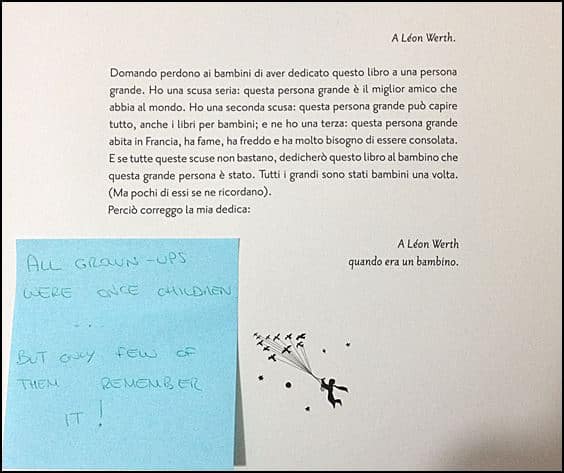 A Léon Werth.
Domando perdono ai bambini di aver dedicato questo libro a una persona
grande. Ho una scusa seria: questa persona grande è il miglior amico che
abbia al mondo. Ho una seconda scusa: questa persona grande può capire
tutto, anche i libri per bambini; e ne ho una terza: questa persona grande
abita in Francia, ha fame, ha freddo e ha molto bisogno di essere consolata.
E se tutte queste scuse non bastano, dedicherò questo libro al bambino che
questa grande persona è stato. Tutti i grandi sono stati bambini una volta.
(Ma pochi di essi se ne ricordano).
Perciò correggo la mia dedica:
A Léon Werth
quando era un bambino.
ALL GROWN-UPS
WERE ONCE CHILDREN
...
BUT ONLY FEW OF
THEM REMEMBER
IT!